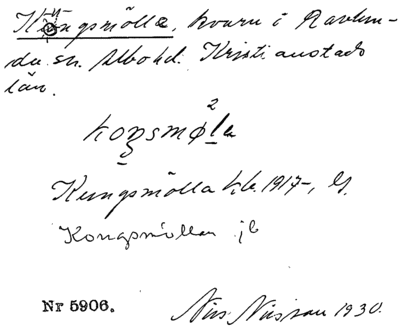 Kongsmölla, kvarn i Ravlun-
da sn. Albo hd. Kristianstads
län.
koŋsmø²la
Kungsmölla kb. 1917-, G.
Kongsmöllan jb
Nr 5906.
Nils Nilsson 1930.